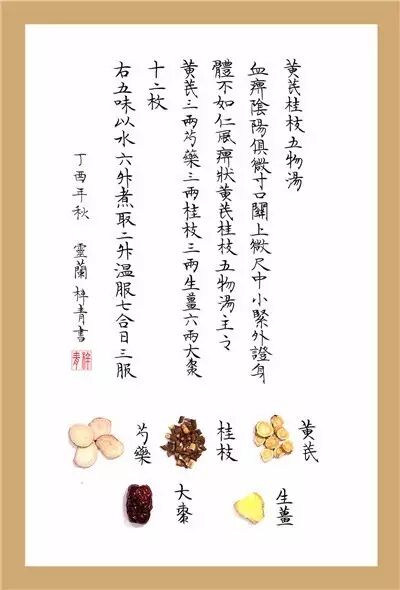 黄芪桂枝五物湯
血痹陰陽俱微寸口關上微尺中小緊外證身
體不如仁風痹狀黄芪桂枝五物湯主之
黄芪三兩芍藥三兩桂枝三兩生薑六兩大棗
十二枚
右五味以水六升煮取二升温服七合日三服
丁酉年秋 靈蘭 梓青書
梓青
黄芪
桂枝
芍藥
生薑
大棗